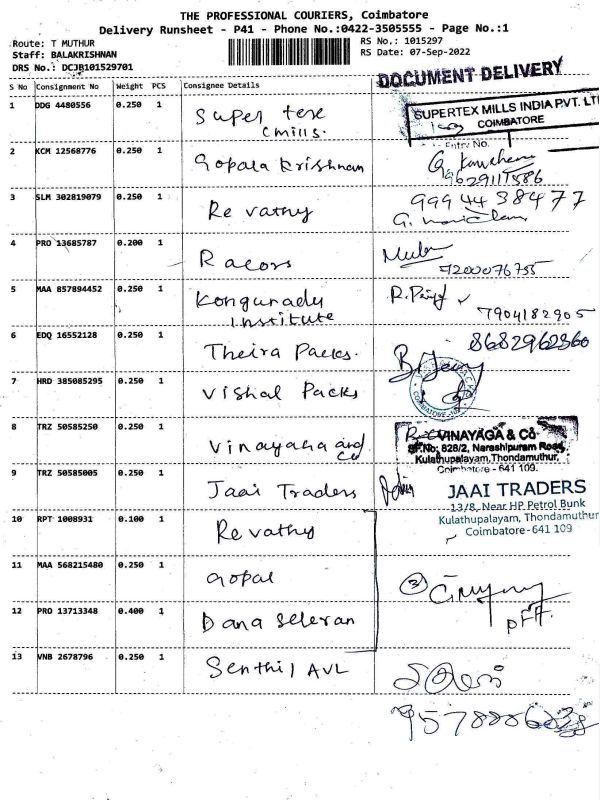 THE PROFESSIONAL COURIERS, Coimbatore
Delivery Runsheet - P41 - Phone No.:0422-3505555 - Page No.:1
Route: T MUTHUR
Staff: BALAKRISHNAN
DRS No.: DCJB101529701
RS No.: 1015297
RS Date: 07-Sep-2022
DOCUMENT DELIVERY
S No Consignment No Weight PCS Consignee Details
1 DDG 4480556 0.250 1 Super texe
Cmills.
SUPERTEX MILLS INDIA PVT. LT
COIMBATORE
Entry No.
2 KCM 12568776 0.250 1 Gopala Krishnan
9629111586
3 SLM 302819079 0.250 1 Revathy 9994438477
4 PRO 13685787 0.200 1 Racors
7200076755
5 MAA 857894452 0.250 1 Kongunadu
Institute
7904182905
6 EDQ 16552128 0.250 1 Theira Packs. 8682962360
7 HRD 385085295 0.250 1 Vishal Packs
8 TRZ 50585250 0.250 1 Vinayaha and
Co
VINAYAGA & Co
SF.No: 828/2, Narashipuram Road,
Kulathupalayam, Thondamuthur,
Coimbatore - 641 109.
9 TRZ 50585005 0.250 1 Jaai Traders
JAAI TRADERS
13/8, Near HP Petrol Bunk
Kulathupalayam, Thondamuthur
Coimbatore - 641 109
10 RPT 1008931 0.100 1 Revathy
11 MAA 568215480 0.250 1 Gopal
12 PRO 13713348 0.400 1 Dana Seleran
13 VNB 2678796 0.250 1 Senthil AVL